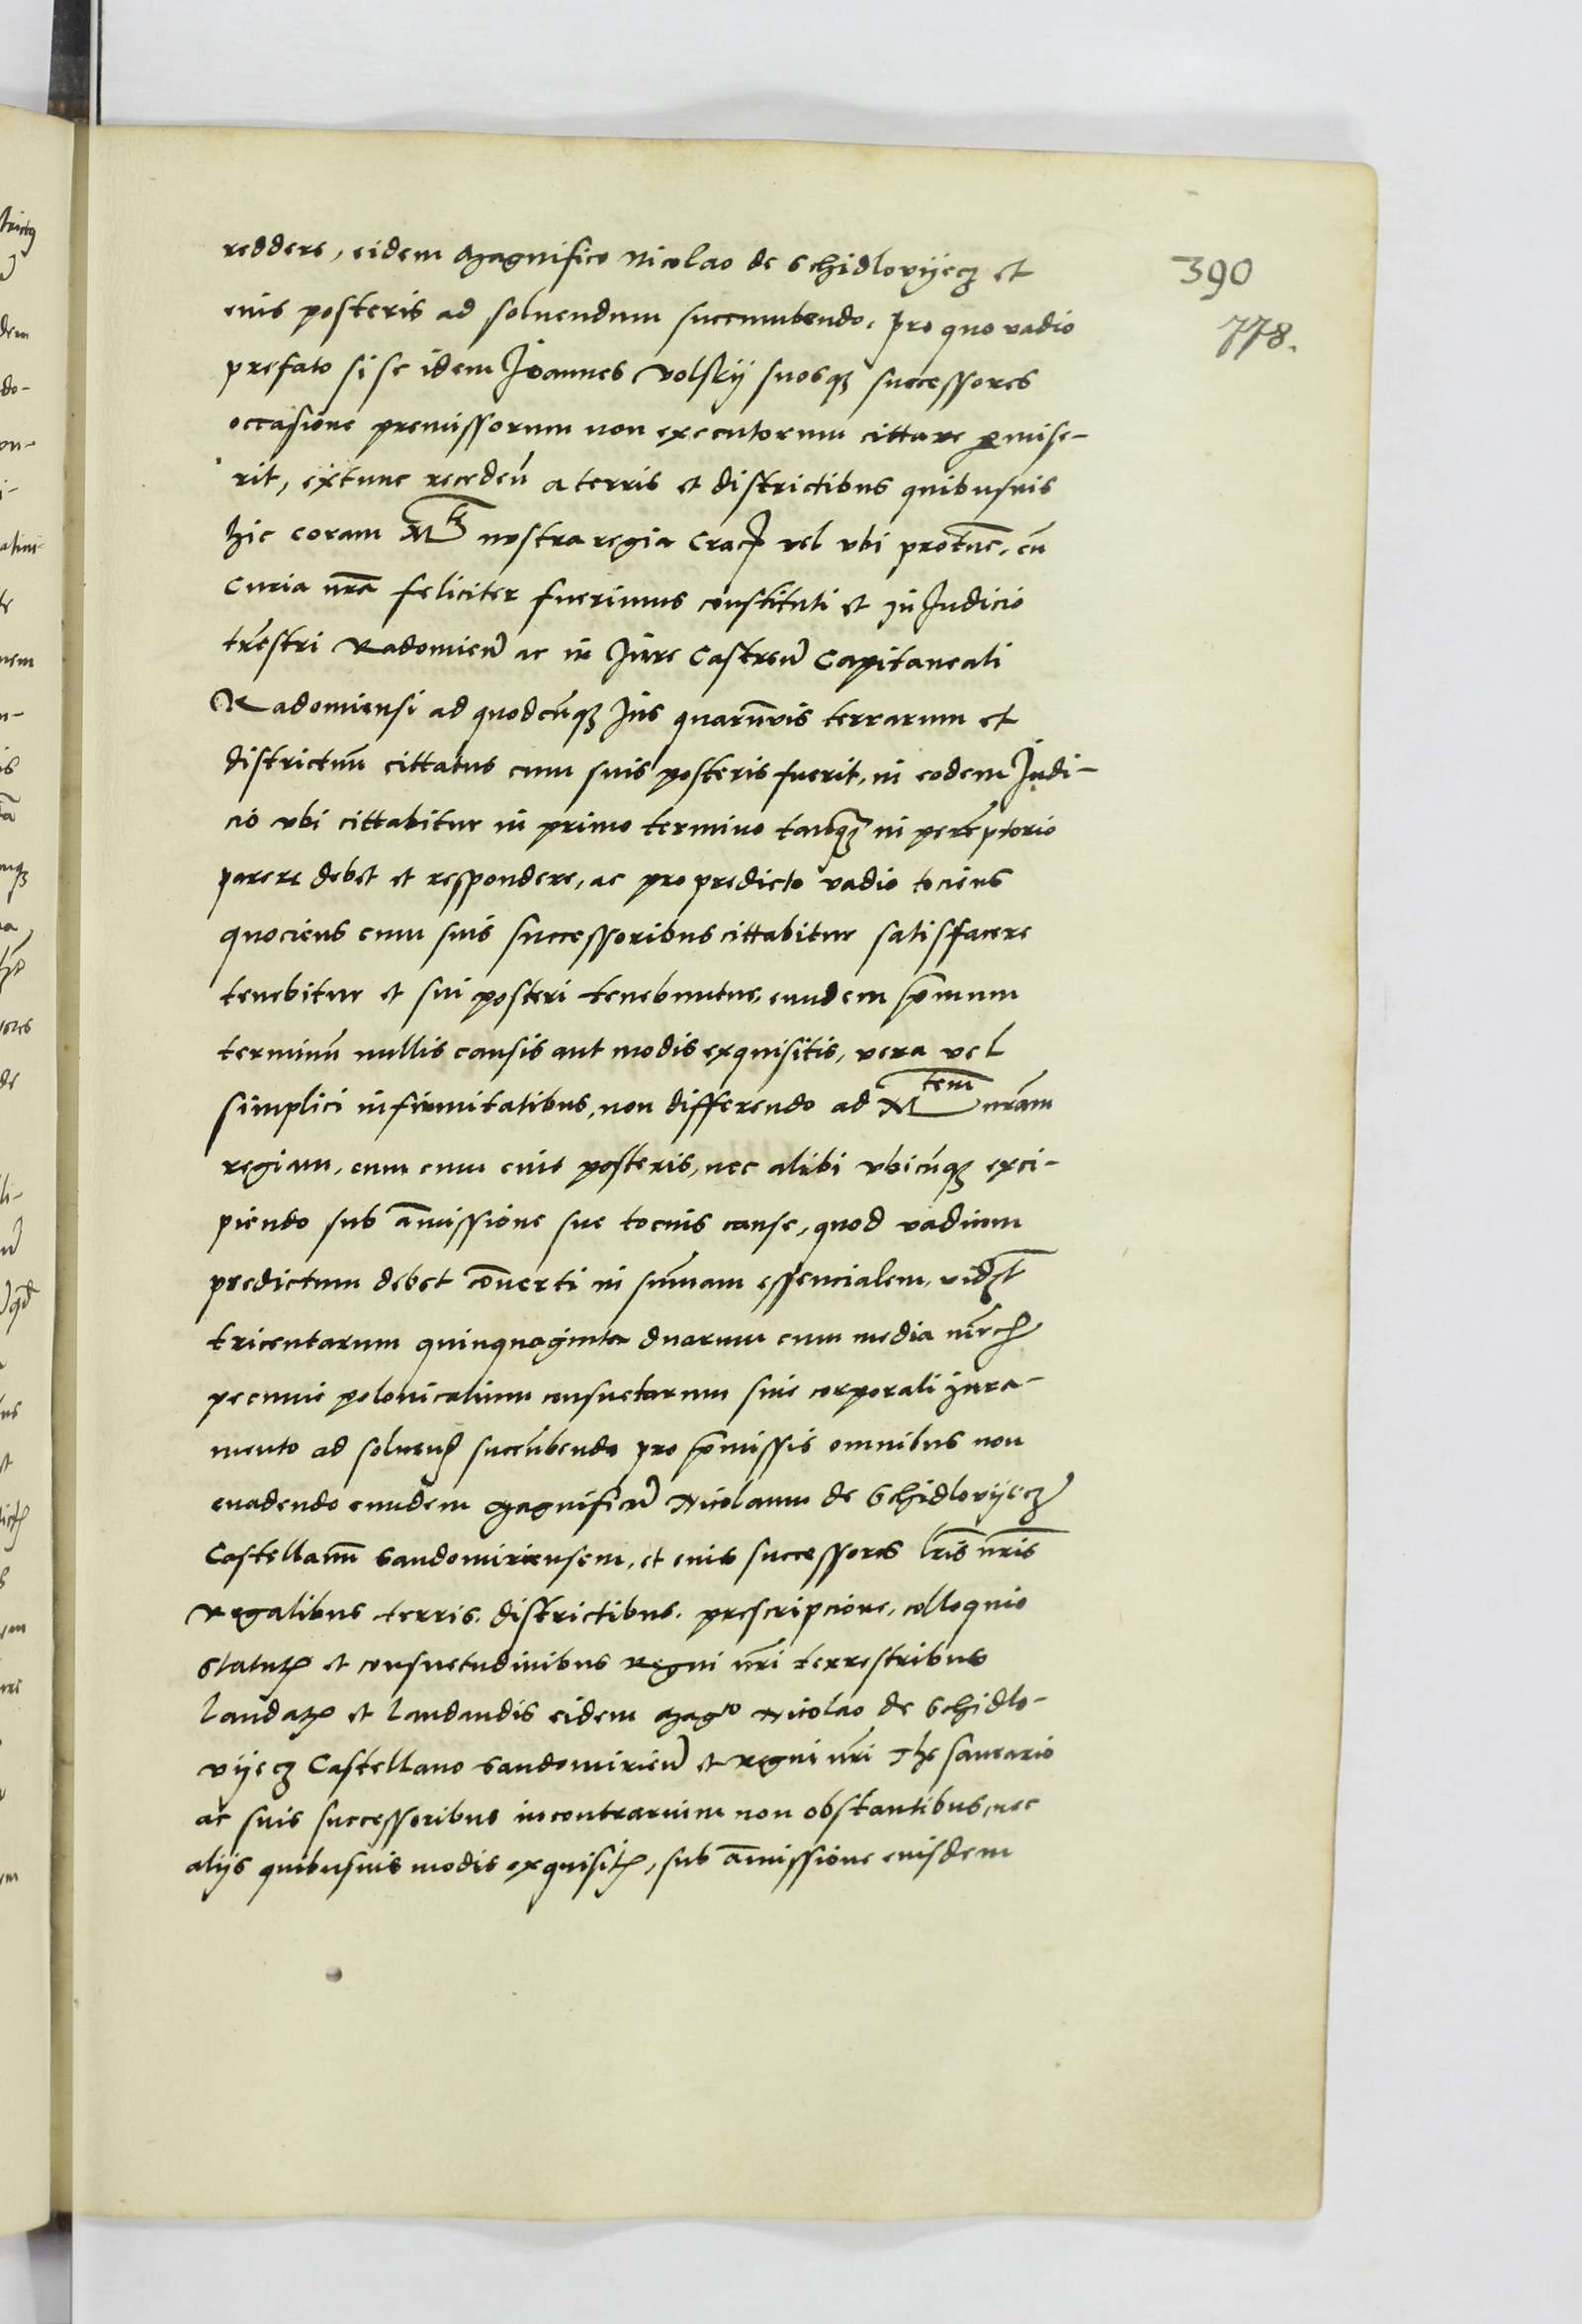 reddere, eidem Magnifico Nicolao de Schidlovyecz et
eius posteris ad soluendum succumbendo. Pro quo vadio
prefato si se idem Ioannes Volsky suosq3 successores
occasione premissorum non executorum cittare p̱mise-
rit, extunc recedeñ a terris et districtibus quibusuis
hic coram M^te nostra regia Crac̄ vel vbi protūc, cū
Curia nr̄a feliciter fuerimus constituti et in Iudicio
tr̄estri Radomień ac in Iure Castreñ Capitaneali
Radomiensi ad quodcūq3 Ius quarūvis terrarum et
districtuū cittatus cum suis posteris fuerit, in eodem Iudi-
cio vbi cittabitur in primo termino tanq̄3 in perēptorio
parere debet et respondere, ac pro predicto vadio tociens
quociens cum suis successoribus cittabitur satisfacere
tenebitur et sui posteri tenebuntur, eundem p̄mum
terminū nullis causis aut modis exquisitis, vera vel
simplici infirmitatibus, non differendo ad M^tem nr̄am
regiam, eum cum eius posteris, nec alibi vbicūq3 exci-
piendo sub āmissione sue tocius cause, quod vadium
predictum debet cōuerti in sum̄am essencialem, vidꝫt
tricentarum quinquaginta duarum cum media mr̄carꝫ
pecunie polonicalium consuetarum siue corporali iura-
mento ad soluenꝰ succūbendo pro p̄missis omnibus non
euadendo eundem Magnificū Nicolaum de Schidlovyecz
Castellanū Sandomiriensem, et eius successores lr̄is nr̄is
Regalibus terris. districtibus. prescripcione, colloquio
statutꝭ et consuetudinibus Regni nr̄i terrestribus
laudatꝭ et laudandis eidem Mag^co Nicolao de Schidlo-
vyecz Castellano Sandomirień et Regni nr̄i Thesaurario
ac suis successoribus incontrarium non obstantibus, nec
alijs quibusuis modis exquisitꝭ, sub āmissione eiusdem
390
778.